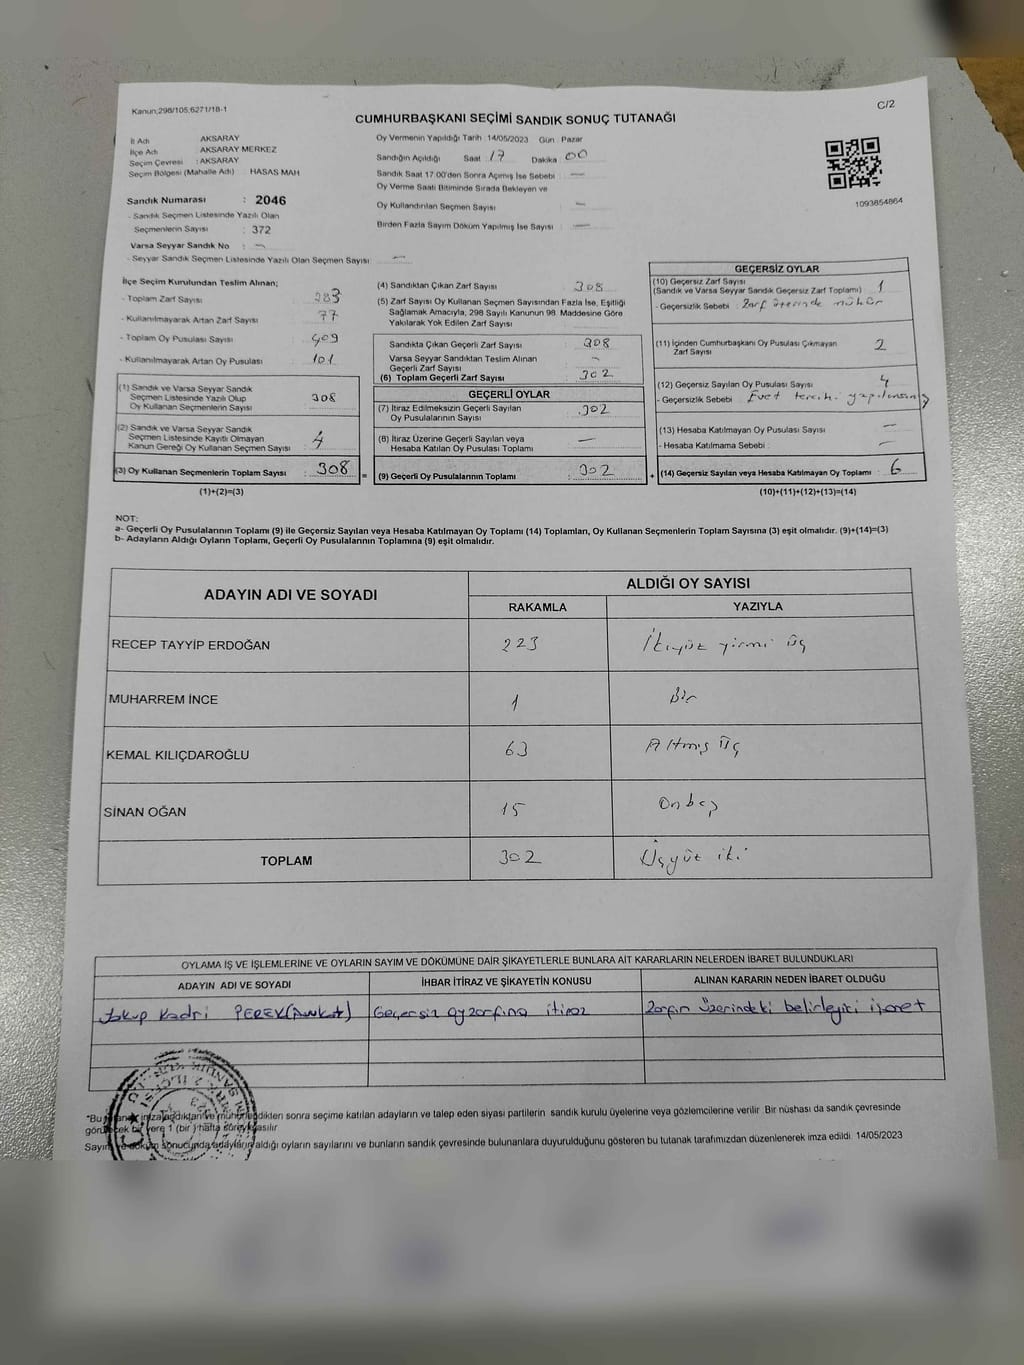 Kanun;298/105;6271/18-1
C/2
CUMHURBAŞKANI SEÇİMİ SANDIK SONUÇ TUTANAĞI
İl Adı AKSARAY
İlçe Adı AKSARAY MERKEZ
Seçim Çevresi : AKSARAY
Seçim Bölgesi (Mahalle Adı) : HASAS MAH
Oy Vermenin Yapıldığı Tarih :14/05/2023 Gün : Pazar
Sandığın Açıldığı Saat : 17 Dakika : 00
Sandık Saat 17:00'den Sonra Açımış İse Sebebi : —
Oy Verme Saati Bitiminde Sırada Bekleyen ve
Oy Kullandırılan Seçmen Sayısı : —
Birden Fazla Sayım Döküm Yapılmış İse Sayısı : —
1093854864
Sandık Numarası : 2046
- Sandık Seçmen Listesinde Yazılı Olan
Seçmenlerin Sayısı : 372
Varsa Seyyar Sandık No : —
- Seyyar Sandık Seçmen Listesinde Yazılı Olan Seçmen Sayısı: —
İlçe Seçim Kurulundan Teslim Alınan;
- Toplam Zarf Sayısı : 383
- Kullanılmayarak Artan Zarf Sayısı : 77
- Toplam Oy Pusulası Sayısı : 409
- Kullanılmayarak Artan Oy Pusulası : 101
(1) Sandık ve Varsa Seyyar Sandık
Seçmen Listesinde Yazılı Olup
Oy Kullanan Seçmenlerin Sayısı : 308
(2) Sandık ve Varsa Seyyar Sandık
Seçmen Listesinde Kayıtlı Olmayan
Kanun Gereği Oy Kullanan Seçmen Sayısı : 4
(3) Oy Kullanan Seçmenlerin Toplam Sayısı : 308 =
(1)+(2)=(3)
(4) Sandıktan Çıkan Zarf Sayısı : 308
(5) Zarf Sayısı Oy Kullanan Seçmen Sayısından Fazla İse, Eşitliği
Sağlamak Amacıyla, 298 Sayılı Kanunun 98. Maddesine Göre
Yakılarak Yok Edilen Zarf Sayısı :
Sandıkta Çıkan Geçerli Zarf Sayısı : 308
Varsa Seyyar Sandıktan Teslim Alınan
Geçerli Zarf Sayısı : —
(6) Toplam Geçerli Zarf Sayısı : 302
GEÇERLİ OYLAR
(7) İtiraz Edilmeksizin Geçerli Sayılan
Oy Pusulalarının Sayısı : 302
(8) İtiraz Üzerine Geçerli Sayılan veya
Hesaba Katılan Oy Pusulası Toplamı : —
(9) Geçerli Oy Pusulalarının Toplamı : 302 +
GEÇERSİZ OYLAR
(10) Geçersiz Zarf Sayısı
(Sandık ve Varsa Seyyar Sandık Geçersiz Zarf Toplamı) : 1
- Geçersizlik Sebebi : Zarf üzerinde mühür
(11) İçinden Cumhurbaşkanı Oy Pusulası Çıkmayan
Zarf Sayısı : 2
(12) Geçersiz Sayılan Oy Pusulası Sayısı : 4
- Geçersizlik Sebebi : Evet tercihi yapılmamış
(13) Hesaba Katılmayan Oy Pusulası Sayısı : —
- Hesaba Katılmama Sebebi : —
(14) Geçersiz Sayılan veya Hesaba Katılmayan Oy Toplamı : 6
(10)+(11)+(12)+(13)=(14)
NOT:
a- Geçerli Oy Pusulalarının Toplamı (9) ile Geçersiz Sayılan veya Hesaba Katılmayan Oy Toplamı (14) Toplamları, Oy Kullanan Seçmenlerin Toplam Sayısına (3) eşit olmalıdır. (9)+(14)=(3)
b- Adayların Aldığı Oyların Toplamı, Geçerli Oy Pusulalarının Toplamına (9) eşit olmalıdır.
ADAYIN ADI VE SOYADI
ALDIĞI OY SAYISI
RAKAMLA YAZIYLA
RECEP TAYYİP ERDOĞAN 223 İkiyüz yirmi üç
MUHARREM İNCE 1 Bir
KEMAL KILIÇDAROĞLU 63 Altmış üç
SİNAN OĞAN 15 Onbeş
TOPLAM 302 Üçyüz iki
OYLAMA İŞ VE İŞLEMLERİNE VE OYLARIN SAYIM VE DÖKÜMÜNE DAİR ŞİKAYETLERLE BUNLARA AİT KARARLARIN NELERDEN İBARET BULUNDUKLARI
ADAYIN ADI VE SOYADI İHBAR İTİRAZ VE ŞİKAYETİN KONUSU ALINAN KARARIN NEDEN İBARET OLDUĞU
Yakup Kadri PEREK (Avukat) Geçersiz oy zarfına itiraz Zarfın üzerindeki belirleyici işaret
"Bu mühürlendikten sonra seçime katılan adayların ve talep eden siyasi partilerin sandık kurulu üyelerine veya gözlemcilerine verilir. Bir nüshası da sandık çevresinde
görülecek bir yere 1 (bir) hafta süreyle asılır
Sayım ve döküm sonucunda adayların aldığı oyların sayılarını ve bunların sandık çevresinde bulunanlara duyurulduğunu gösteren bu tutanak tarafımızdan düzenlenerek imza edildi. 14/05/2023